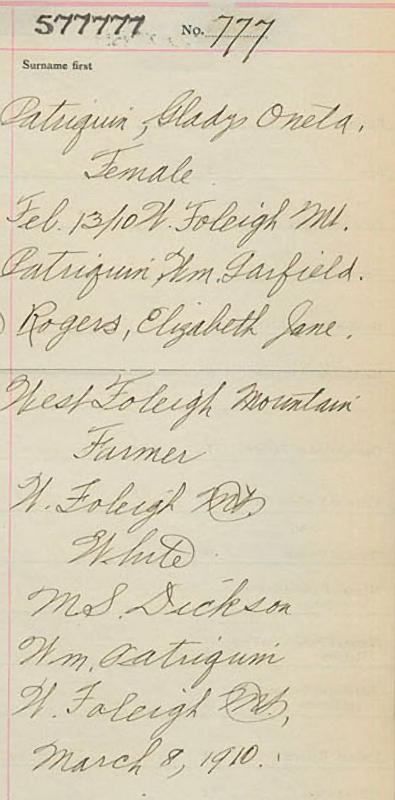 577777 No. 777
Surname first
Patriquin, Gladys Oneta.
Female
Feb. 13/10 W. Foleigh Mt.
Patriquin, Wm. Garfield.
Rogers, Elizabeth Jane.
West Foleigh Mountain
Farmer
W. Foleigh Mt.
White
M.S. Dickson
Wm. Patriquin
W. Foleigh Mt.
March 8, 1910.